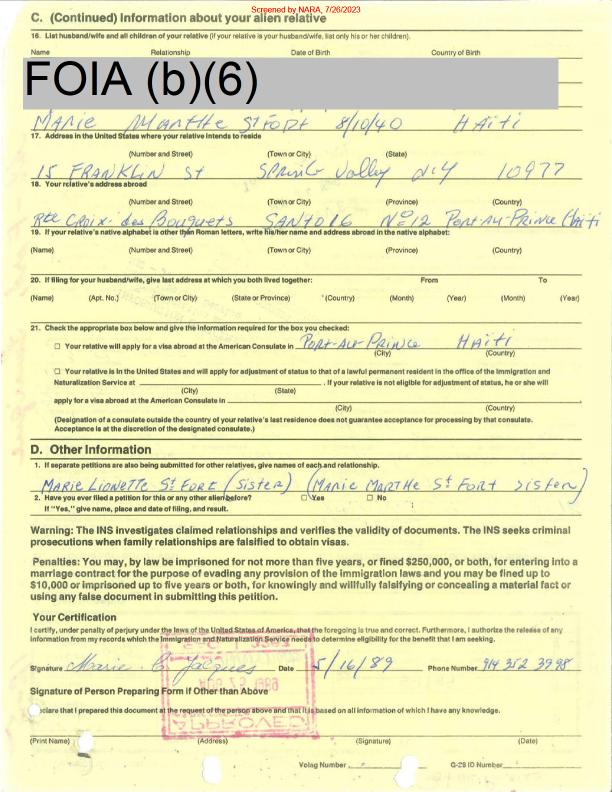 Screened by NARA, 7/26/2023
C. (Continued) Information about your alien relative
16. List husband/wife and all children of your relative (if your relative is your husband/wife, list only his or her children).
Name Relationship Date of Birth Country of Birth
FOIA (b)(6)
Marie Marthe St Fort 8/10/40 Haiti
17. Address in the United States where your relative intends to reside
(Number and Street) (Town or City) (State)
15 Franklin St Spring Valley N.Y 10977
18. Your relative's address abroad
(Number and Street) (Town or City) (Province) (Country)
Rte Croix-des Bouquets SANTO 16 No 12 Port-Au-Prince Haiti
19. If your relative's native alphabet is other than Roman letters, write his/her name and address abroad in the native alphabet:
(Name) (Number and Street) (Town or City) (Province) (Country)
20. If filing for your husband/wife, give last address at which you both lived together: From To
(Name) (Apt. No.) (Town or City) (State or Province) (Country) (Month) (Year) (Month) (Year)
21. Check the appropriate box below and give the information required for the box you checked:
☐ Your relative will apply for a visa abroad at the American Consulate in Port-Au-Prince Haiti
(City) (Country)
☐ Your relative is in the United States and will apply for adjustment of status to that of a lawful permanent resident in the office of the Immigration and
Naturalization Service at . If your relative is not eligible for adjustment of status, he or she will
(City) (State)
apply for a visa abroad at the American Consulate in
(City) (Country)
(Designation of a consulate outside the country of your relative's last residence does not guarantee acceptance for processing by that consulate.
Acceptance is at the discretion of the designated consulate.)
D. Other Information
1. If separate petitions are also being submitted for other relatives, give names of each and relationship.
Marie Lionette St Fort (Sister) (Marie Marthe St Fort Sister)
2. Have you ever filed a petition for this or any other alien before? ☐ Yes ☐ No
If "Yes," give name, place and date of filing, and result.
Warning: The INS investigates claimed relationships and verifies the validity of documents. The INS seeks criminal
prosecutions when family relationships are falsified to obtain visas.
Penalties: You may, by law be imprisoned for not more than five years, or fined $250,000, or both, for entering into a
marriage contract for the purpose of evading any provision of the immigration laws and you may be fined up to
$10,000 or imprisoned up to five years or both, for knowingly and willfully falsifying or concealing a material fact or
using any false document in submitting this petition.
Your Certification
I certify, under penalty of perjury under the laws of the United States of America, that the foregoing is true and correct. Furthermore, I authorize the release of any
information from my records which the Immigration and Naturalization Service needs to determine eligibility for the benefit that I am seeking.
Signature Marie C. Jacques Date 5/16/89 Phone Number 914 352 3998
Signature of Person Preparing Form if Other than Above
declare that I prepared this document at the request of the person above and that it is based on all information of which I have any knowledge.
(Print Name) (Address) (Signature) (Date)
APPROVED
Volag Number G-28 ID Number